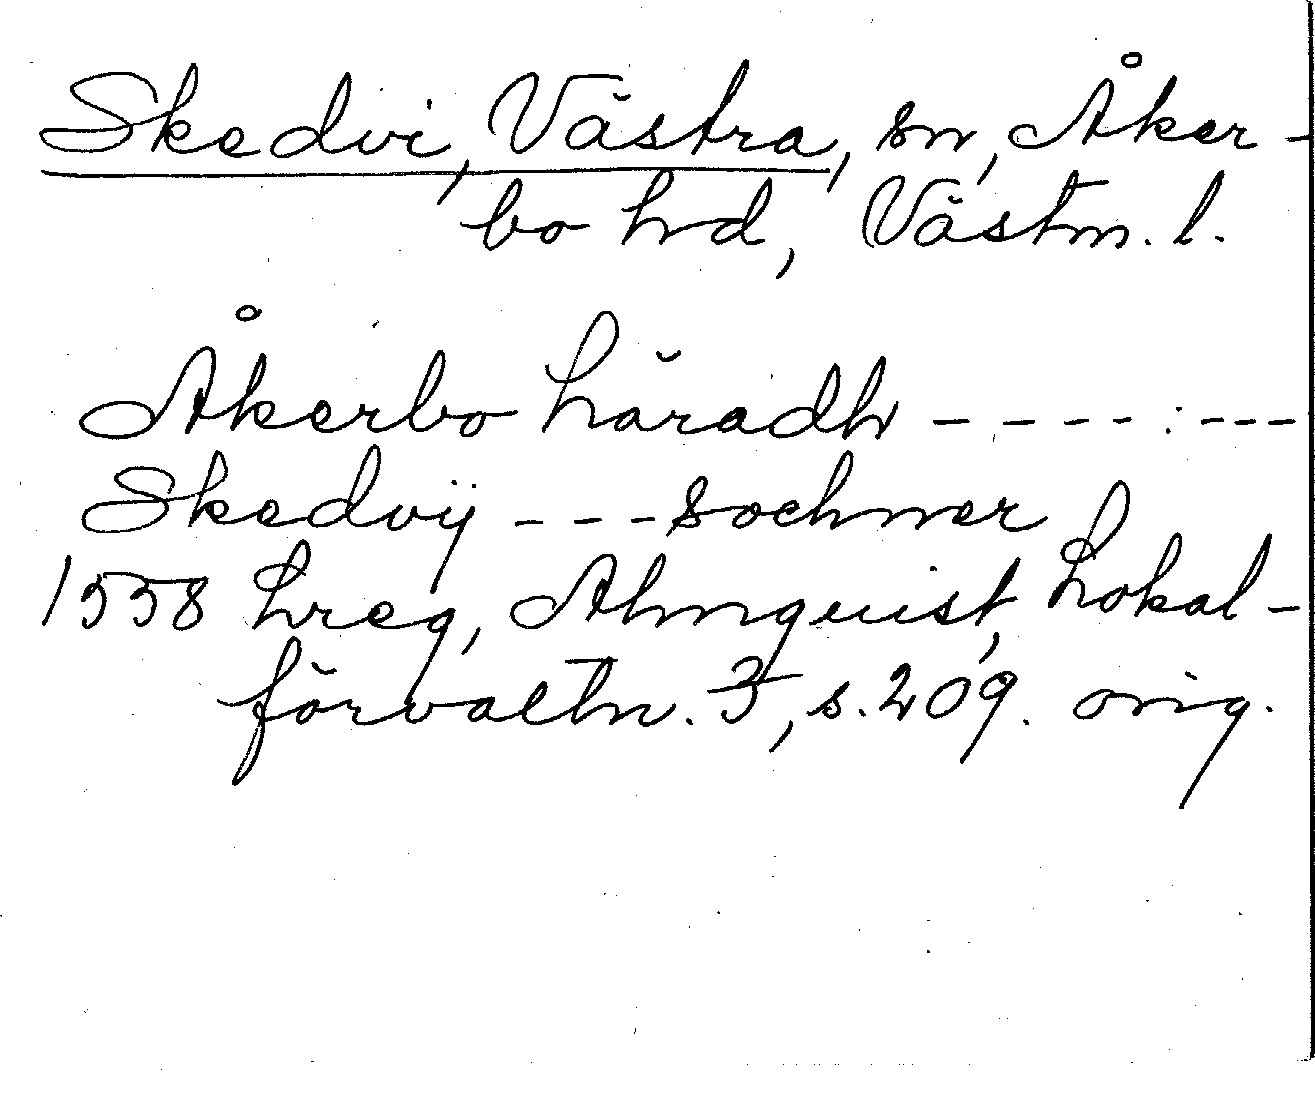 Skedvi, Västra, sn, Åker-
bo hd, Västm. l.
Åkerbo häradh - - - - : - - -
Skedvÿ - - - sochner
1558 hreg, Almquist, Lokal-
förvaltn. 3, s. 209. orig.